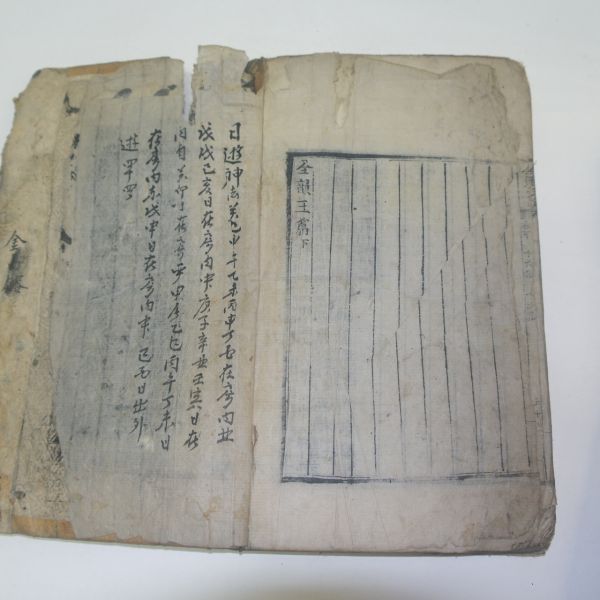 全韻玉篇下
日遊神法癸巳甲午乙未丙申丁酉在房內北
戊戌己亥日在房內中庚子辛丑壬寅日在
內自癸卯日在房西甲辰乙巳丙午丁未日
在房內東戊申日在房內中己酉日出外
遊
全